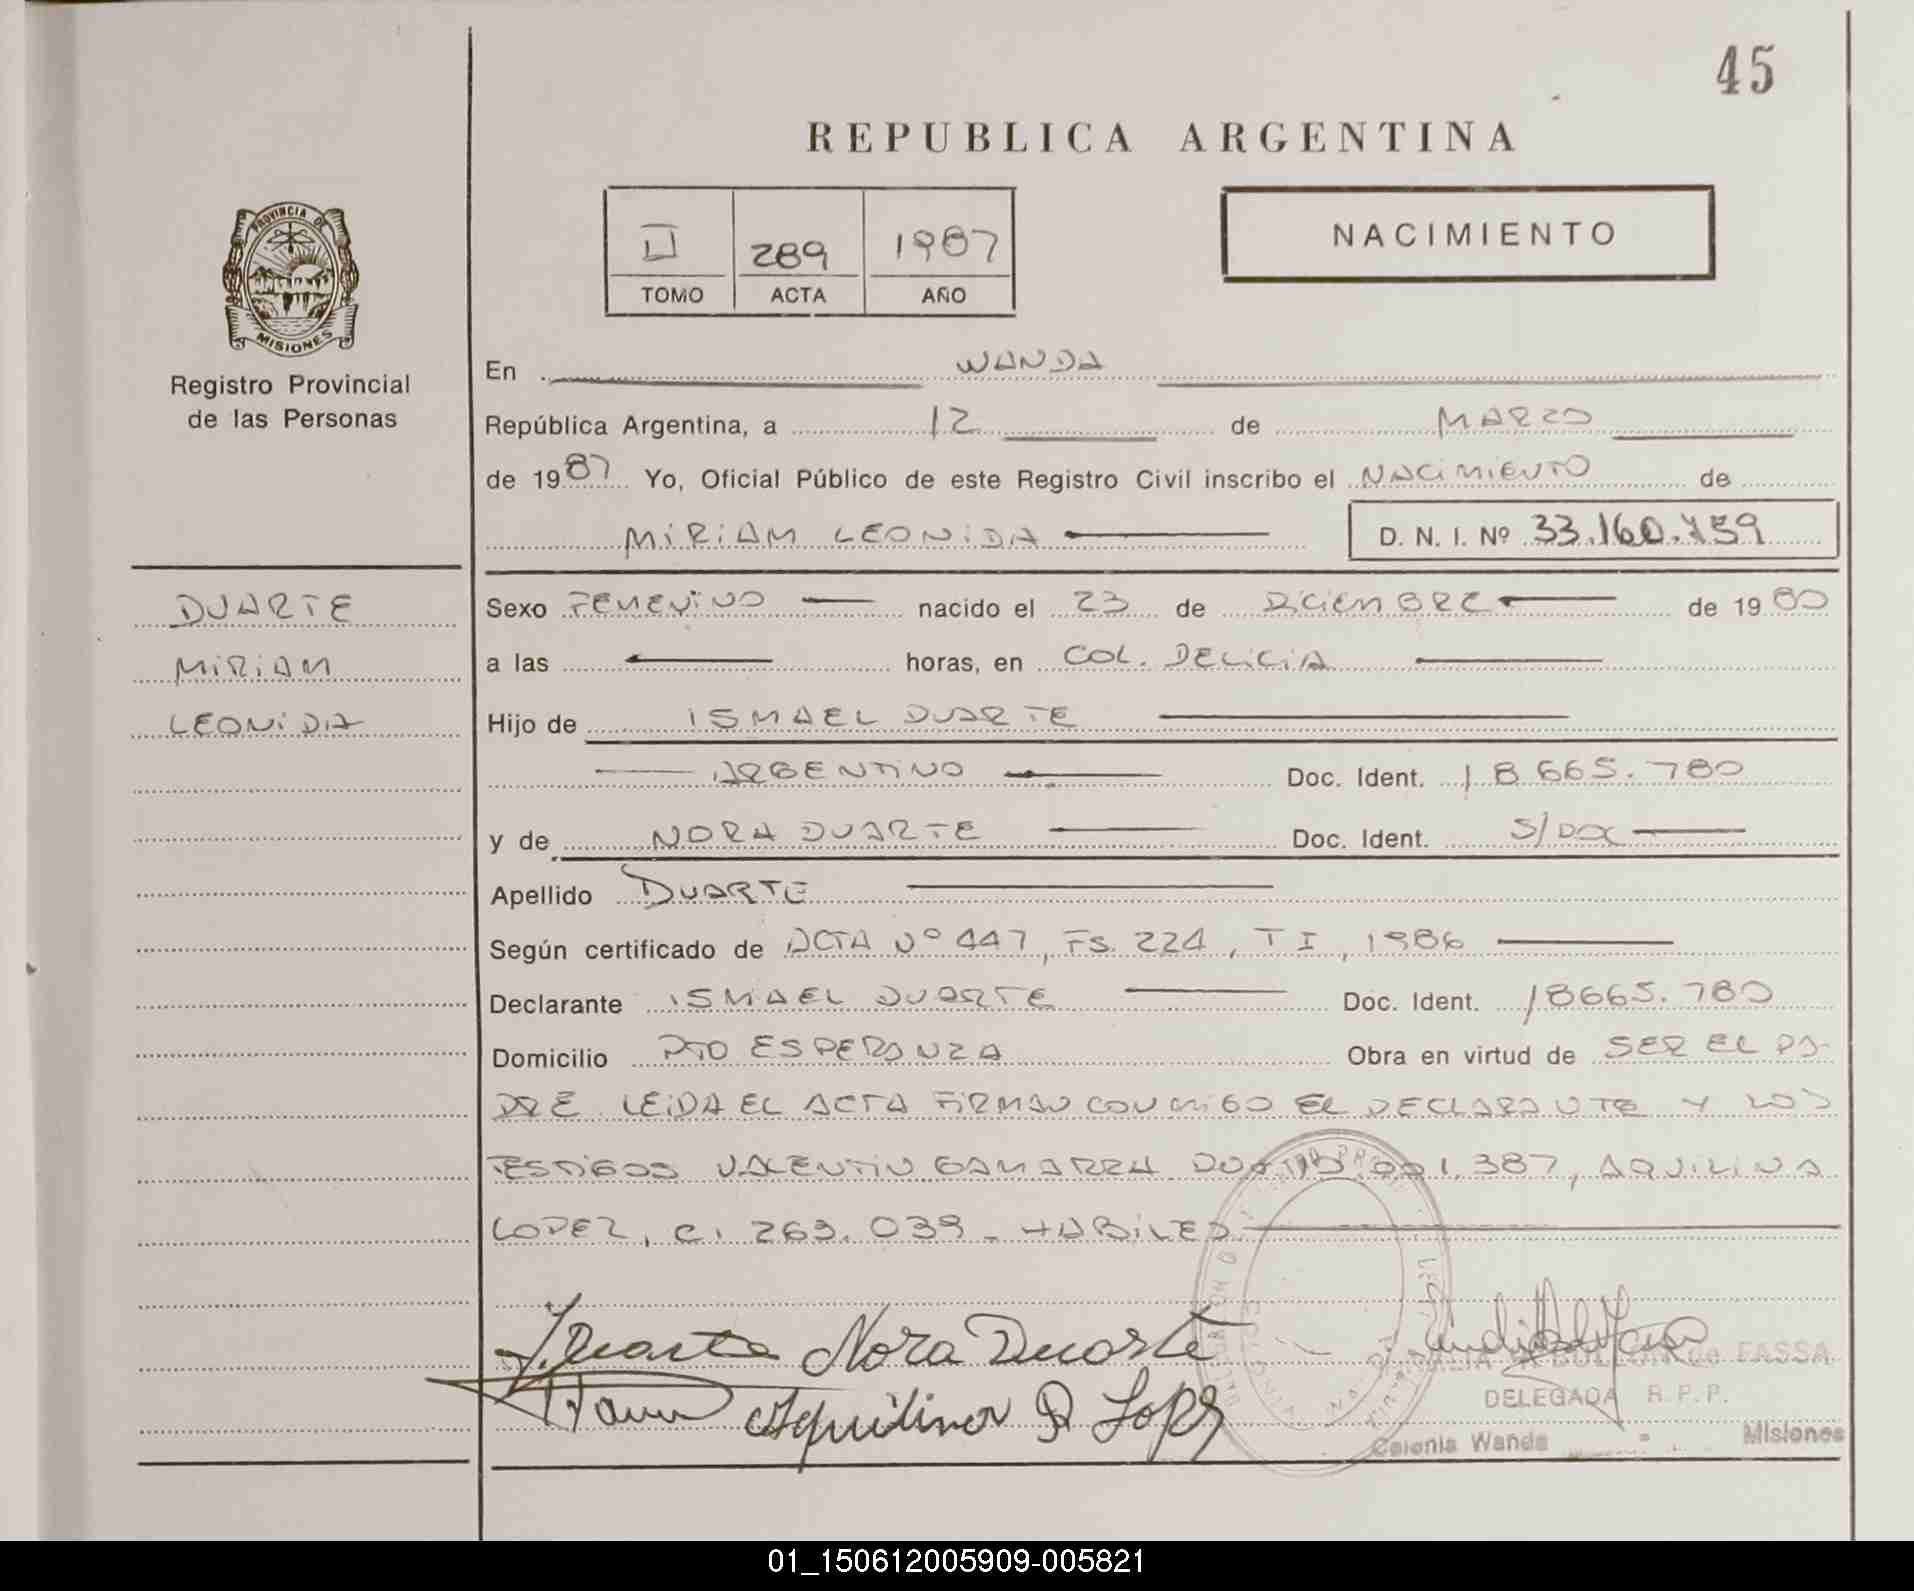 45
REPUBLICA ARGENTINA
II 289 1987
TOMO ACTA AÑO
NACIMIENTO
PROVINCIA DE
MISIONES
Registro Provincial
de las Personas
En WANDA
República Argentina, a 12 de MARZO
de 1987 Yo, Oficial Público de este Registro Civil inscribo el NACIMIENTO de
MIRIAM LEONIDA D. N. I. Nº 33.160.759
DUARTE
MIRIAM
LEONIDA
Sexo FEMENINO nacido el 23 de DICIEMBRE de 1980
a las horas, en COL. DELICIA
Hijo de ISMAEL DUARTE
ARGENTINO Doc. Ident. 18665.780
y de NORA DUARTE Doc. Ident. S/DOC
Apellido DUARTE
Según certificado de ACTA Nº 447, FS. 224, T I, 1986
Declarante ISMAEL DUARTE Doc. Ident. 18665.780
Domicilio PTO ESPERANZA Obra en virtud de SER EL PA-
DRE LEIDA EL ACTA FIRMAN CONMIGO EL DECLARANTE Y LOS
TESTIGOS VALENTIN GAMARRA 387, AQUILINA
LOPEZ, C. 269.039 - HABILES
J. Duarte Nora Duarte
Aquilina R Lopez
de FASSA
DELEGADA R.P.P.
Colonia Wanda Misiones
01_150612005909-005821